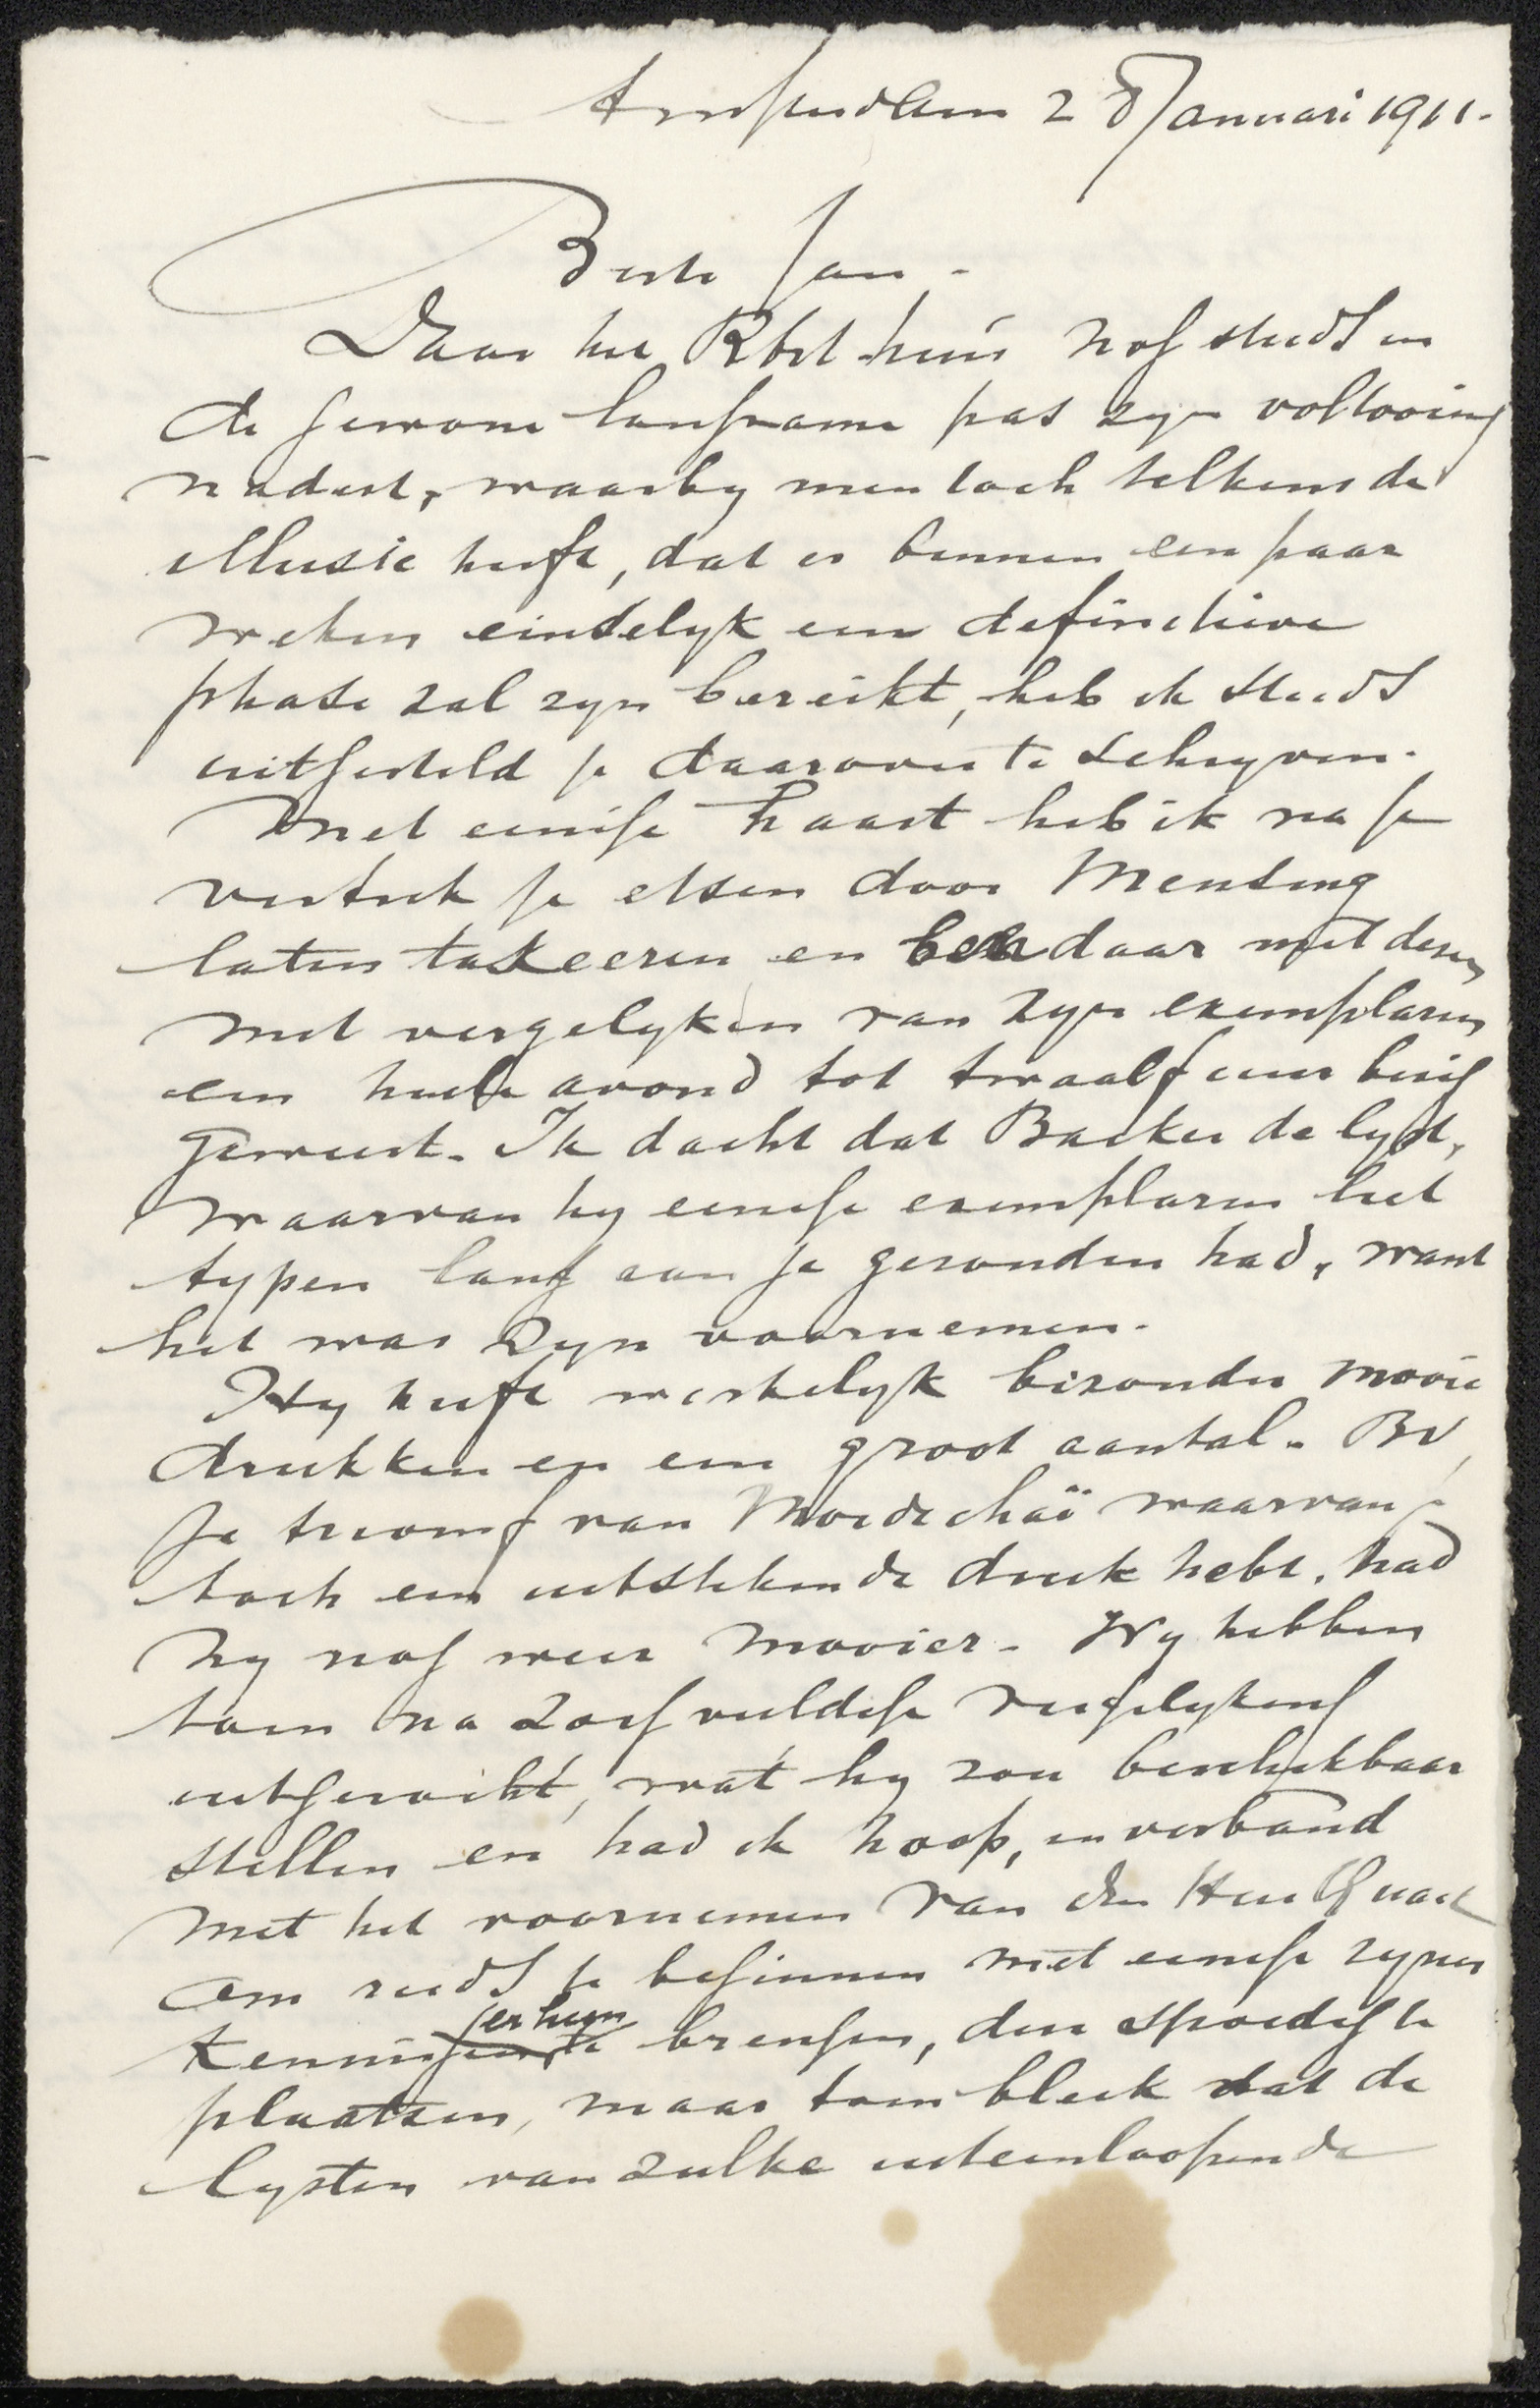 Amsterdam 28 Januari 1911.
Beste Jan.
Daar het Rbdt huis nog steeds in
de gewone langzame pas zyn voltooiing
nadert, waarby men toch telkens de
illusie heeft, dat er binnen een paar
weken eindelyk een definitieve
phase zal zyn bereikt, heb ik steeds
uitgesteld je daarover te schryven.
Met eenige haast heb ik na je
vertrek je etsen door Mensing
laten taxeeren en ben daar met dezen
met vergelyken van zyn exemplaren
een heele avond tot twaalf uur bezig
geweest. Ik dacht dat Backer de lyst,
waarvan hy eenige exemplaren liet
typen lang aan je gezonden had, want
het was zyn voornemen.
Hy heeft werkelyk bizonder mooie
drukken en een groot aantal. Bv,
je triomf van Mordechaï waarvan je
toch een uitstekende druk hebt, had
hy nog weer mooier. Wy hebben
toen na zorgvuldige vergelyking
uitgezocht, wat hy zou beschikbaar
stellen en had ik hoop, in verband
met het voornemen van den Heer
om reeds te beginnen met eenige zyner
penningen hierheen te brengen, die spoedig te
plaatsen, maar toen bleek dat de
lysten van zulke uiteenloopende